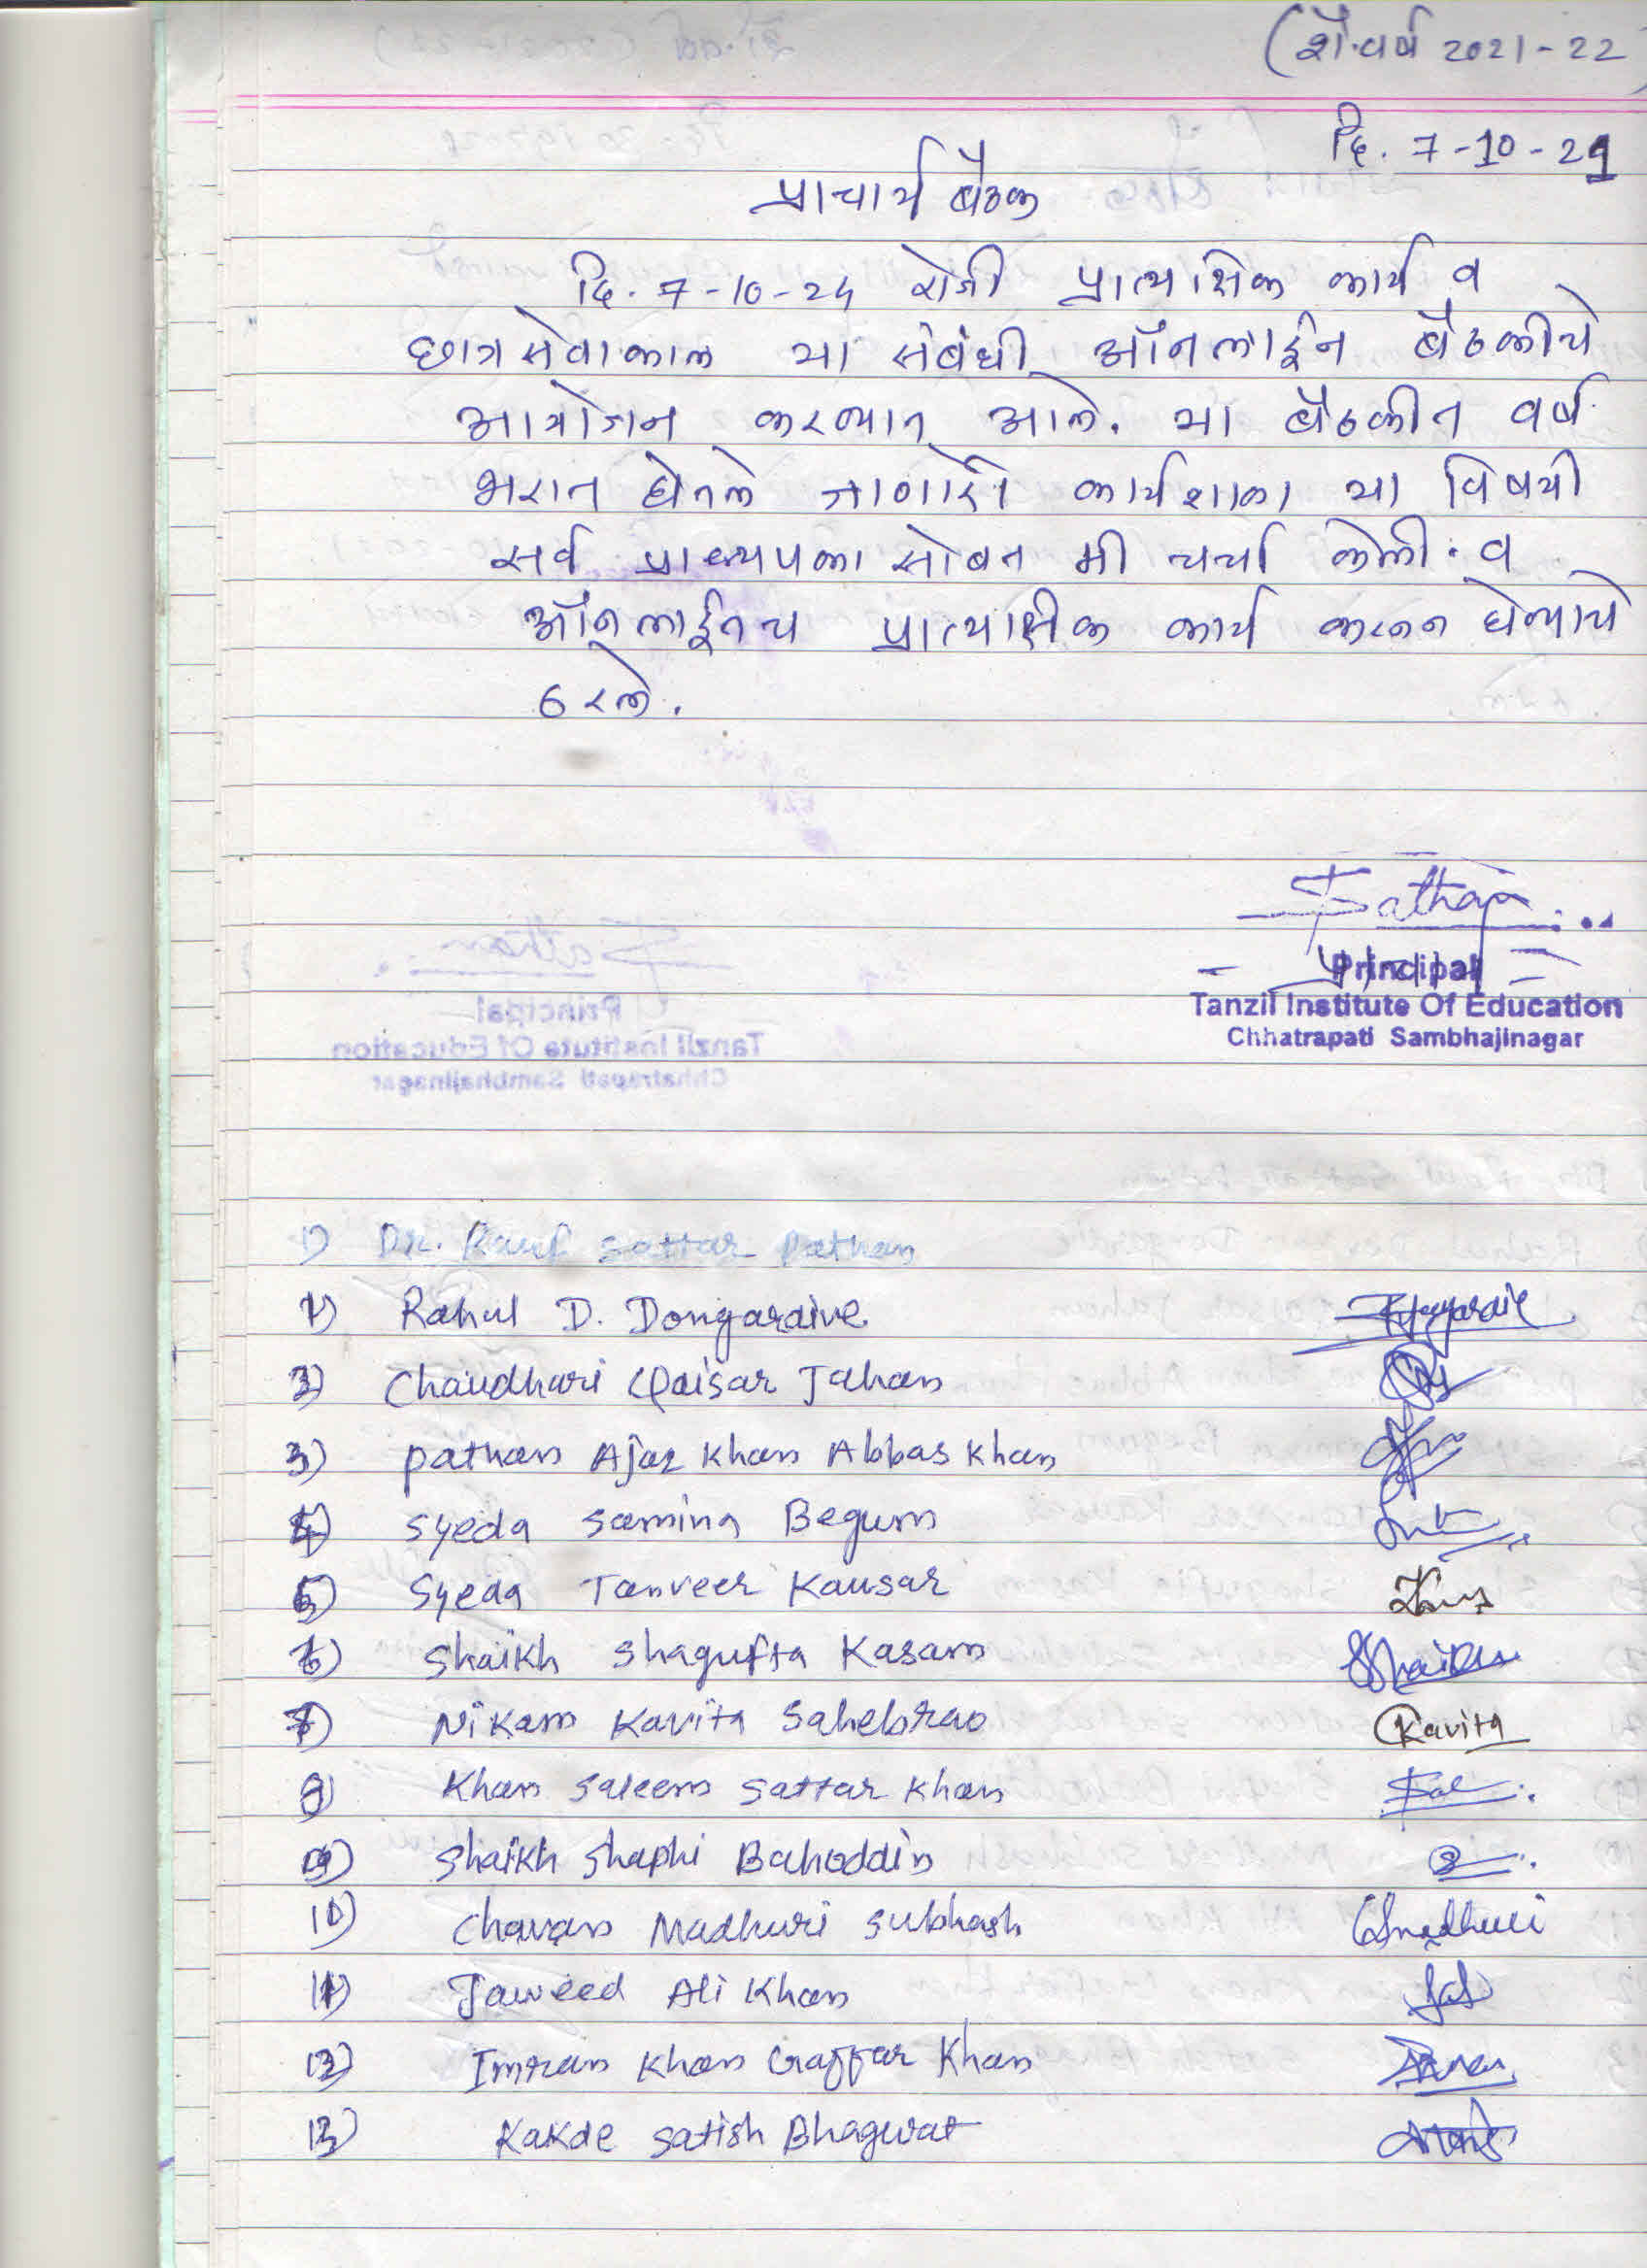 (शै.वर्ष 2021-22)
दि. 7-10-21
प्राचार्य बैठक
दि. 7-10-21 रोजी प्रात्यक्षिक कार्य व
छात्रसेवाकाल या संबंधी ऑनलाईन बैठकीचे
आयोजन करण्यात आले. या बैठकीत वर्ष
भरात घेतले जाणारे कार्यशाळा या विषयी
सर्व प्राध्यपका सोबत मी चर्चा केली. व
ऑनलाईनच प्रात्यक्षिक कार्य करून घेण्याचे
ठरले.
Principal
Tanzil Institute Of Education
Chhatrapati Sambhajinagar
1) Dr. Rauf Sattar Pathan
1) Rahul D. Dongardive
2) Chaudhari Qaisar Jahan
3) Pathan Ajaz Khan Abbas Khan
4) Syeda Samina Begum
5) Syeda Tanveer Kausar
6) Shaikh Shagufta Kasam
7) Nikam Kavita Sahebrao Kavita
8) Khan Saleem Sattar Khan
9) Shaikh Shaphi Bahoddin
10) Chavan Madhuri Subhash
11) Jaweed Ali Khan
12) Imran Khan Gaffar Khan
13) Kakde Satish Bhagwat